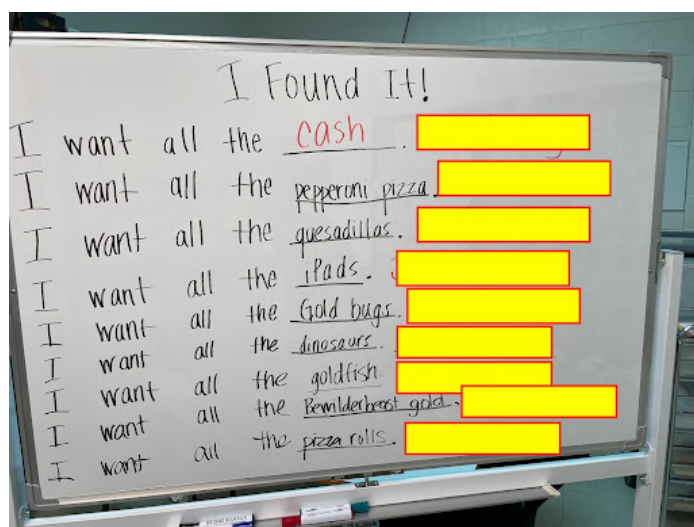 I Found It!
I want all the cash.
I want all the pepperoni pizza.
I want all the quesadillas.
I want all the iPads.
I want all the Gold bugs.
I want all the dinosaurs.
I want all the goldfish
I want all the Bewilderbeast gold.
I want all the pizza rolls.